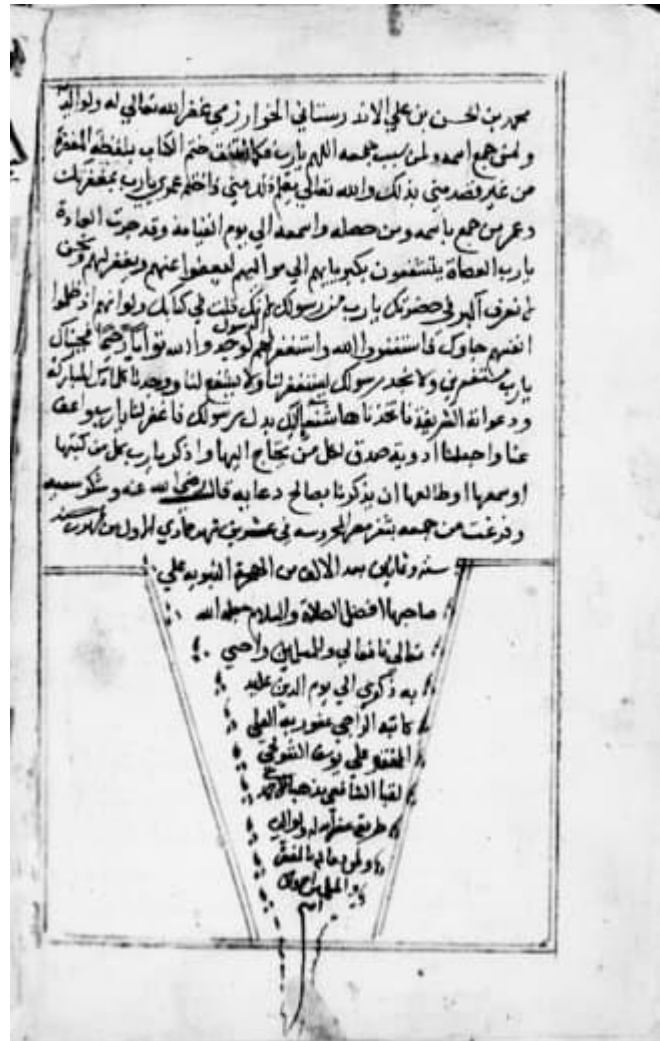 محمد بن الحسن بن علي الاندرستاني الخوارزمي غفر الله تعالي له ولوالديه
ولمن جمع اسمه ولمن سبب جمعه اللهم يارب ختم الكتاب بلفظة المغفرة
من غير قصد مني بذلك والله تعالي
جمع باسمه ومن حصله واسمعه الي يوم القيامة وقد جرت العادة
يارب العصاة يتشفعون الي مواليهم ليعفوا عنهم ويغفر لهم ونحن
لم نعرف اكبر في حضرتك يارب من رسولك لانك قلت في كتابك ولو انهم اذ ظلموا
انفسهم جاؤك فاستغفروا الله واستغفر لهم الرسول لوجدوا الله توابا رحيما فجيناك
يارب مستغفرين ولا نجد رسولك يستغفر لنا ولا يشفع لنا ووجدنا المباركة
ودعواته الشريفة فاتخذناها شفيعا اليك بدل رسولك فاغفر لنا يارب واعف
عنا واجعلنا صدق لكل من يحتاج اليها واذكر يارب كل من كتبها
او سمعها او طالعها ان يذكرنا بصالح دعايه قال رضي الله عنه وشكر سعيه
وفرغت من جمعه بثغر مصر المحروسه في عشرين شهر جمادي الاول من شهور
سنة وثلاثين بعد الالف من الهجرة النبويه علي
صاحبها افضل الصلاة والسلام جعله الله
تعالى نافعا لي وللمسلمين واحيي
به ذكري الي يوم الدين
كاتبه الراجي عفو ربه العلي
علي يوسف
لقبا الشافعي مذهبا
طريقة غفر الله له ولوالديه
ولمن دعا له بالمغفرة
والمسلمين اجمعين
امين